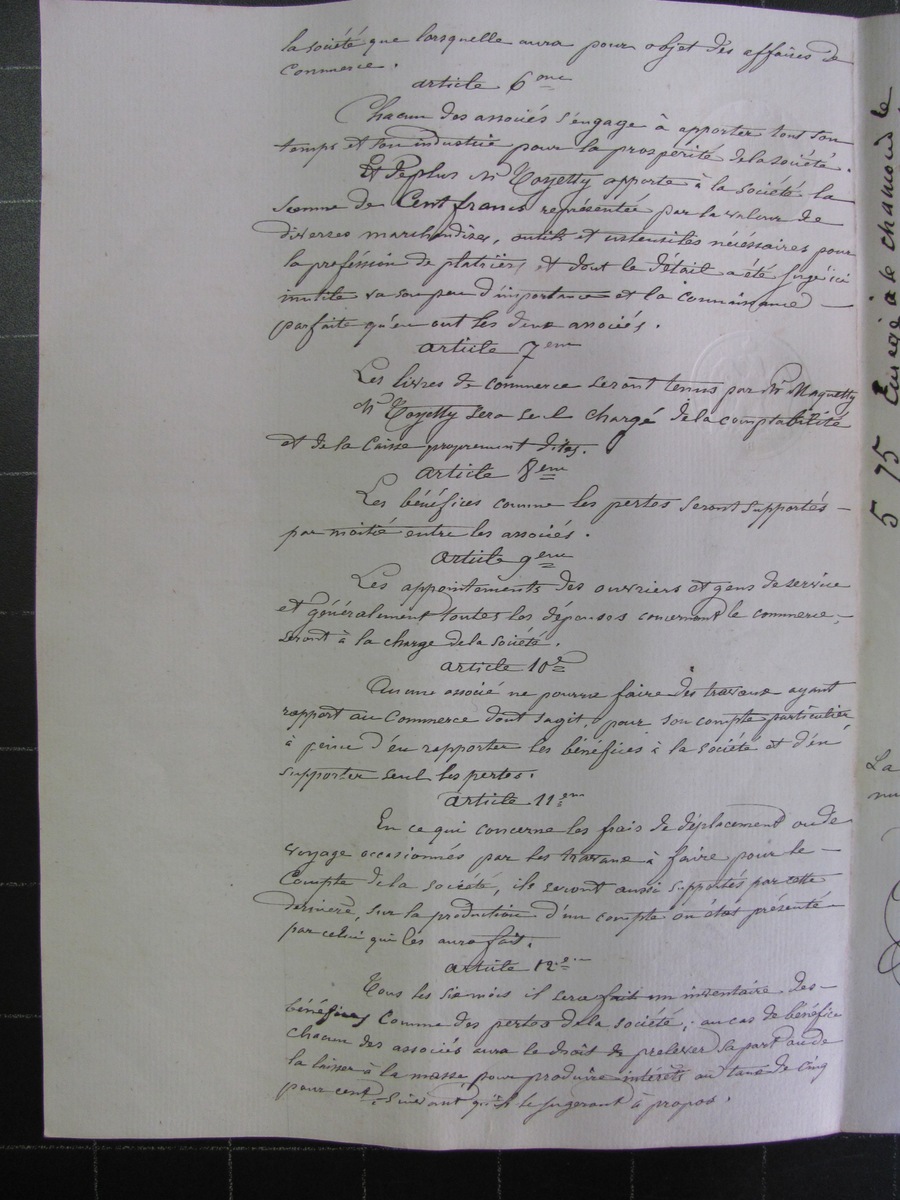 la société que lorsquelle aura pour objet des affaires de
Commerce.
article 6eme
Chacun des associés s'engage à apporter tout son
temps et son industrie pour la prospérité dela société.
Et deplus Mr Toyetty apporte à la société la
somme de Cent francs représentée par la valeur de
diverses marchandises, outils et ustensiles nécéssaires pour
la profession de platriers et dont le détail a été jugé ici
inutile va son peu d'importance et la connaissance
parfaite qu'en ont les deux associés.
article 7eme
Les livres de commerce seront tenus par Mr Maquetty
Mr Toyetty sera seul chargé dela comptabilité
et de la Caisse proprement dites.
article 8eme
Les bénéfices comme les pertes seront supportés
par moitié entre les associés.
article 9eme
Les appointements des ouvriers et gens deservice
et généralement toutes les dépenses concernant le commerce,
seront à la charge dela société.
article 10e
Aucune associé ne pourra faire des travaux ayant
rapport au Commerce dont sagit, pour son compte particulier
à peine d'en rapporter les bénéfices à la société et d'en
supporter seul les pertes.
article 11em
En ce qui concerne les frais de déplacement ou de
voyage occasionnés par les travaux à faire pour le
Compte dela société, ils seront aussi supportés par cette
derinère, sur la production d'un compte ou état présenté
par celui qui les aura fait.
article 12e
Tous les six mois il sera fait un inventaire des
bénéfices Comme des pertes dela société; au cas de bénéfice
chacun des associés aura le droit de prelever sa part ou de
la laisser à la masse pour produire intérêts au taux de Cinq
pour cent, suivant qu'ils le jugeront à propos.
5 75 Enregé à st chamond le
La